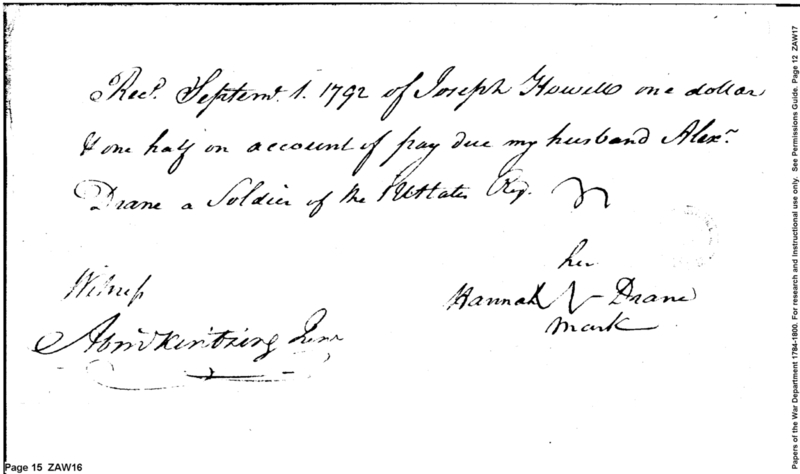 Recd. Septemr. 1. 1792 of Joseph Howell one dollar
& one half on account of pay due my husband Alexr.
Drane a Soldier of the 1 UStates Reg.
her
Hannah Drane
mark
Witness
Abm Kintzing Junr
Page 15 ZAW16
Papers of the War Department 1784-1800. For research and instructional use only. See Permissions Guide. Page 12 ZAW17